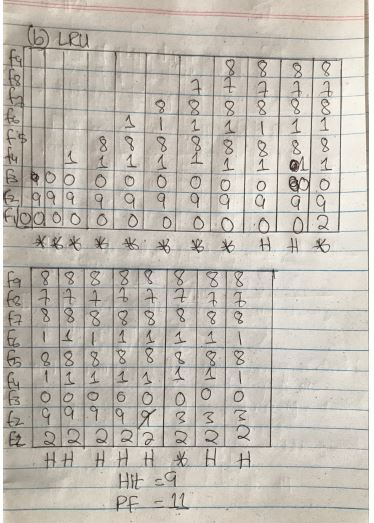 (b) LRU
f9 8 8 8 8
f8 7 7 7 7 7
f7 8 8 8 8 8 8
f6 1 1 1 1 1 1 1
f5 8 8 8 8 8 8 8 8
f4 1 1 1 1 1 1 1 1 1
f3 0 0 0 0 0 0 0 0 0 0
f2 9 9 9 9 9 9 9 9 9 9 9
f1 0 0 0 0 0 0 0 0 0 0 0 2
* * * * * * * * H H *
f9 8 8 8 8 8 8 8 8
f8 7 7 7 7 7 7 7 7
f7 8 8 8 8 8 8 8 8
f6 1 1 1 1 1 1 1 1
f5 8 8 8 8 8 8 8 8
f4 1 1 1 1 1 1 1 1
f3 0 0 0 0 0 0 0 0
f2 9 9 9 9 9 3 3 3
2 2 2 2 2 2 2 2
H H H H H * H H
Hit = 9
PF = 11